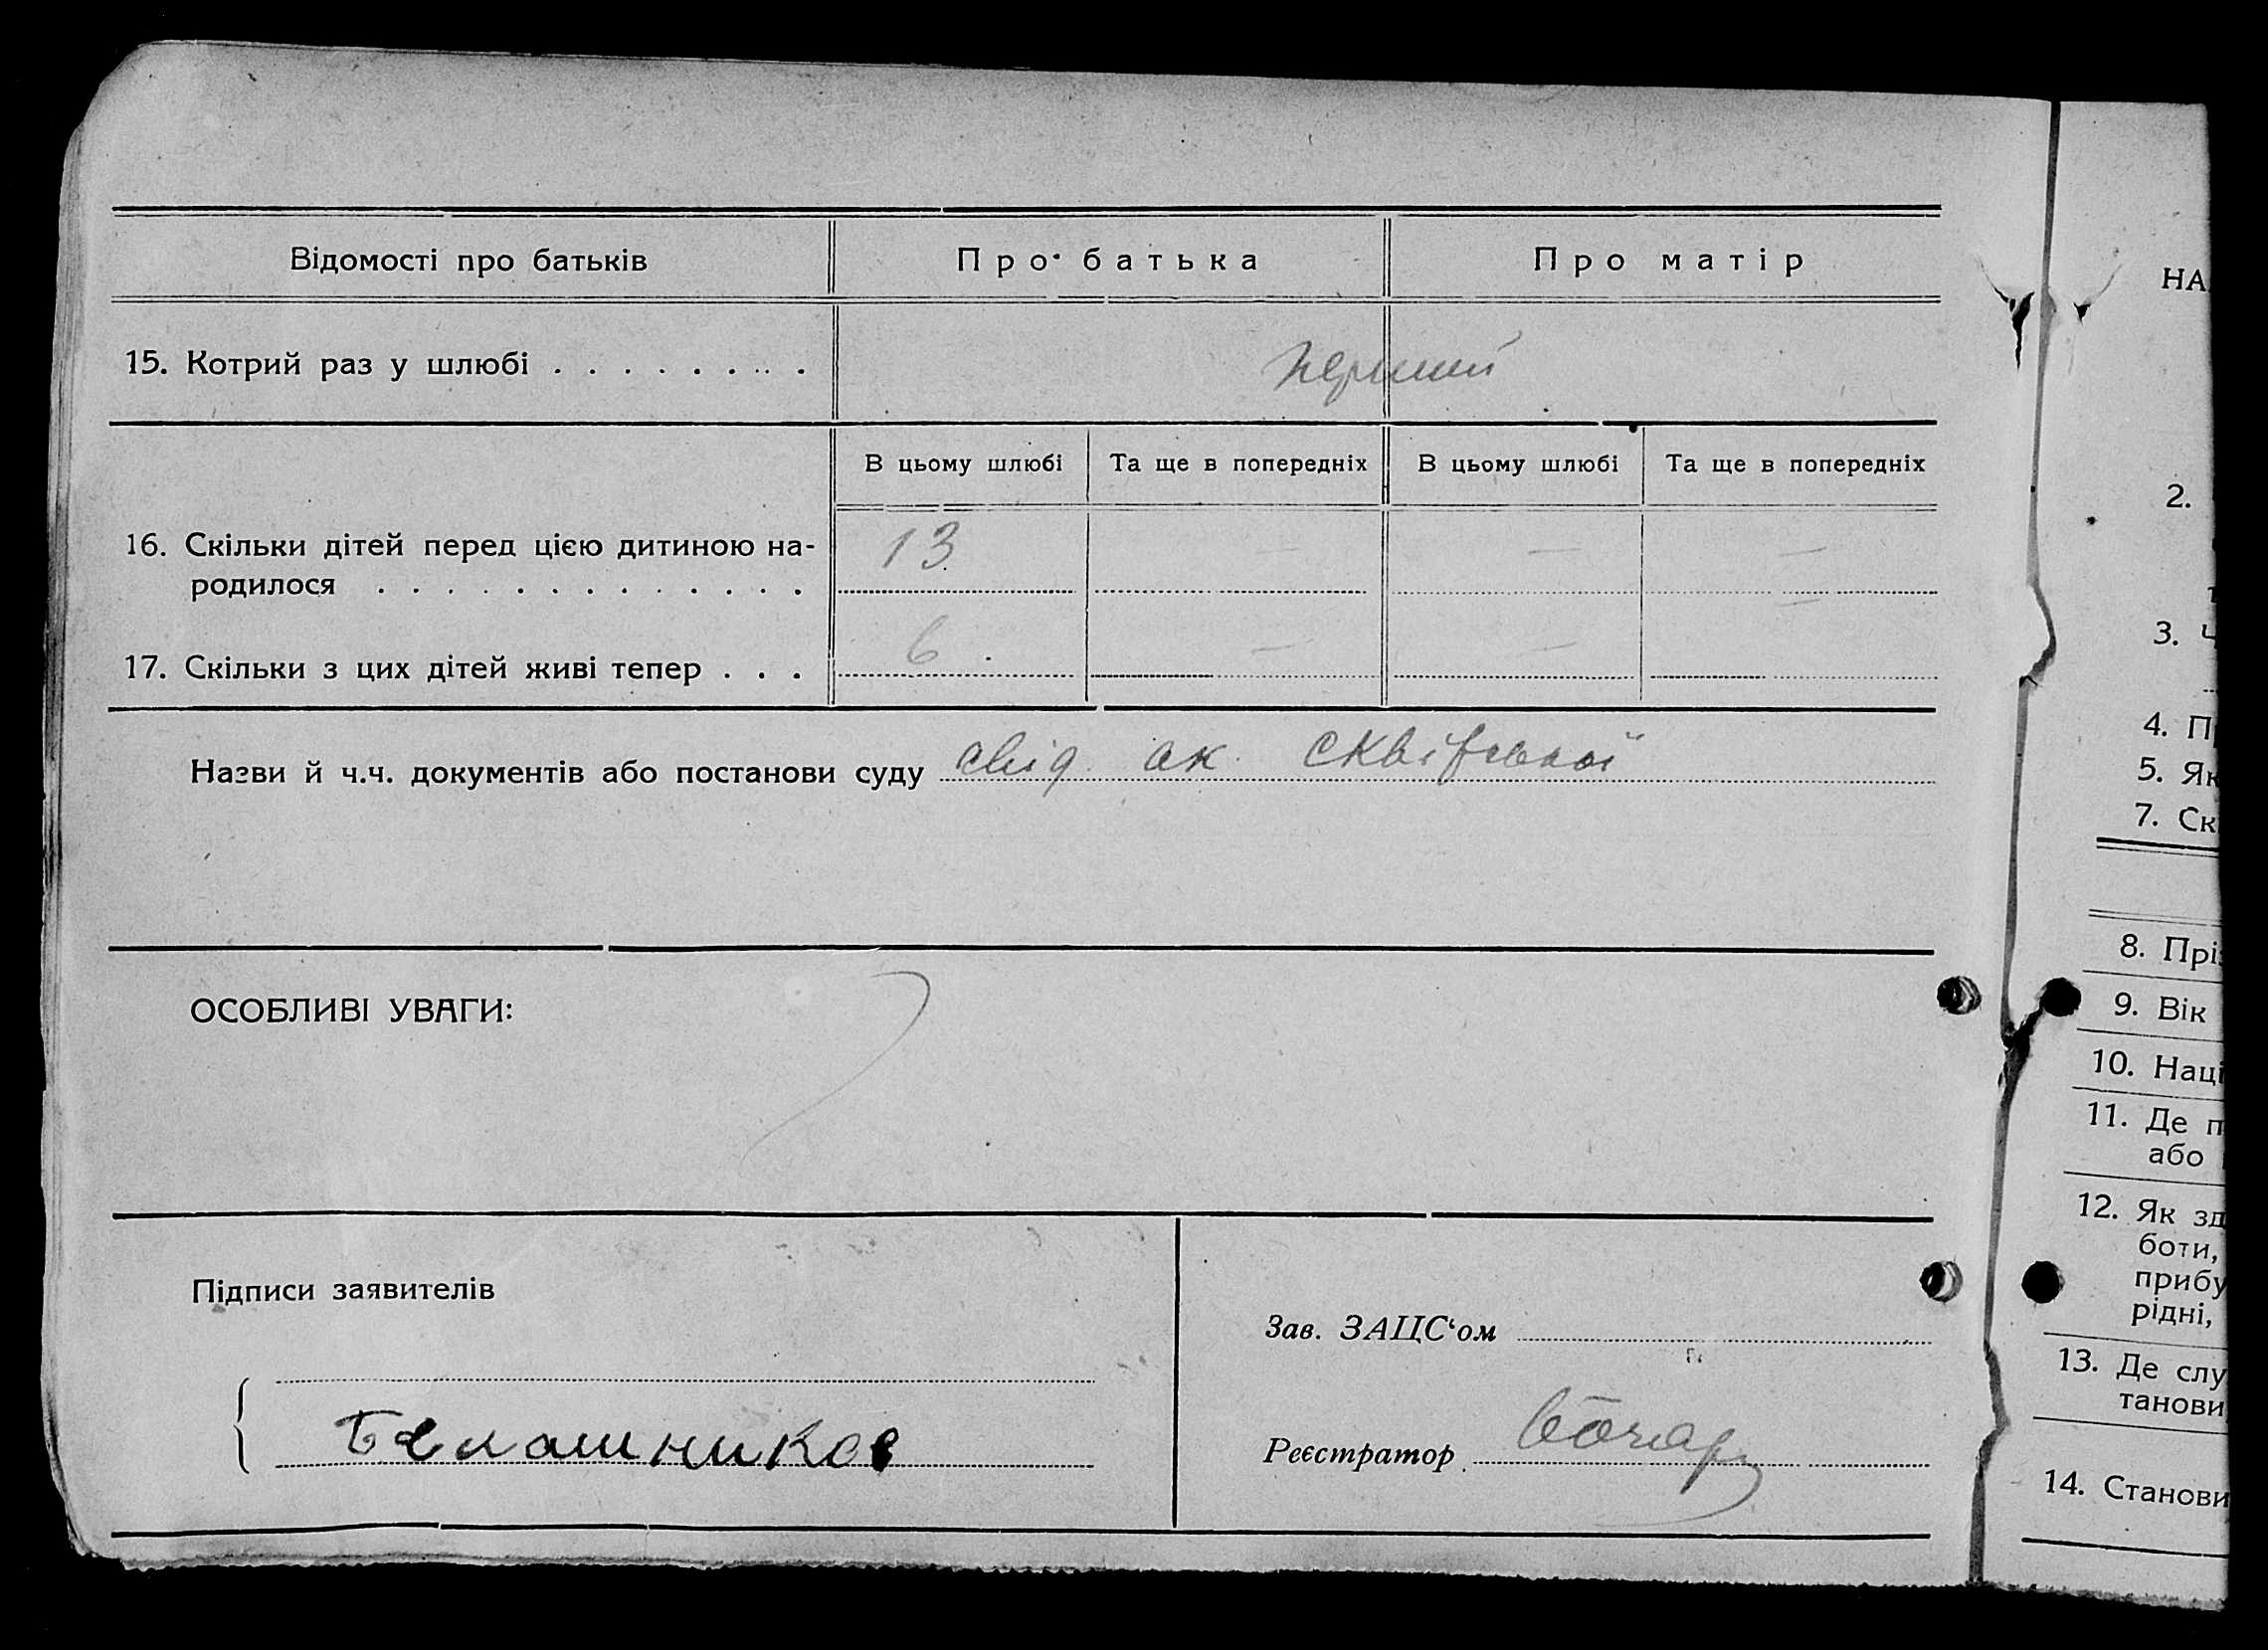 Відомості про батьків Про батька Про матір
15. Котрий раз у шлюбі . . . . . . . . . перший
В цьому шлюбі Та ще в попередніх В цьому шлюбі Та ще в попередніх
16. Скільки дітей перед цією дитиною на-
родилося . . . . . . . . . . . . . 13 — — —
17. Скільки з цих дітей живі тепер . . . 6 — — —
Назви й ч.ч. документів або постанови суду свід. ак. Сквірської
ОСОБЛИВІ УВАГИ:
Підписи заявителів
Зав. ЗАЦС‘ом
Реєстратор
НА
2.
3. Ч
4. П
5. Як
7. Ск
8. Пріз
9. Вік
10. Наці
11. Де п
або
12. Як зд
боти,
прибу
рідні,
13. Де слу
танови
14. Станови